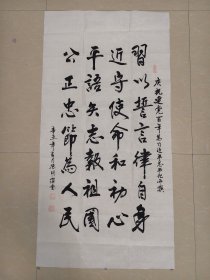 庆祝建党百年為习近平总书记
習以誓言律自身
近守使命和初心
平語矢志報祖國
公正忠節為人民
辛丑年